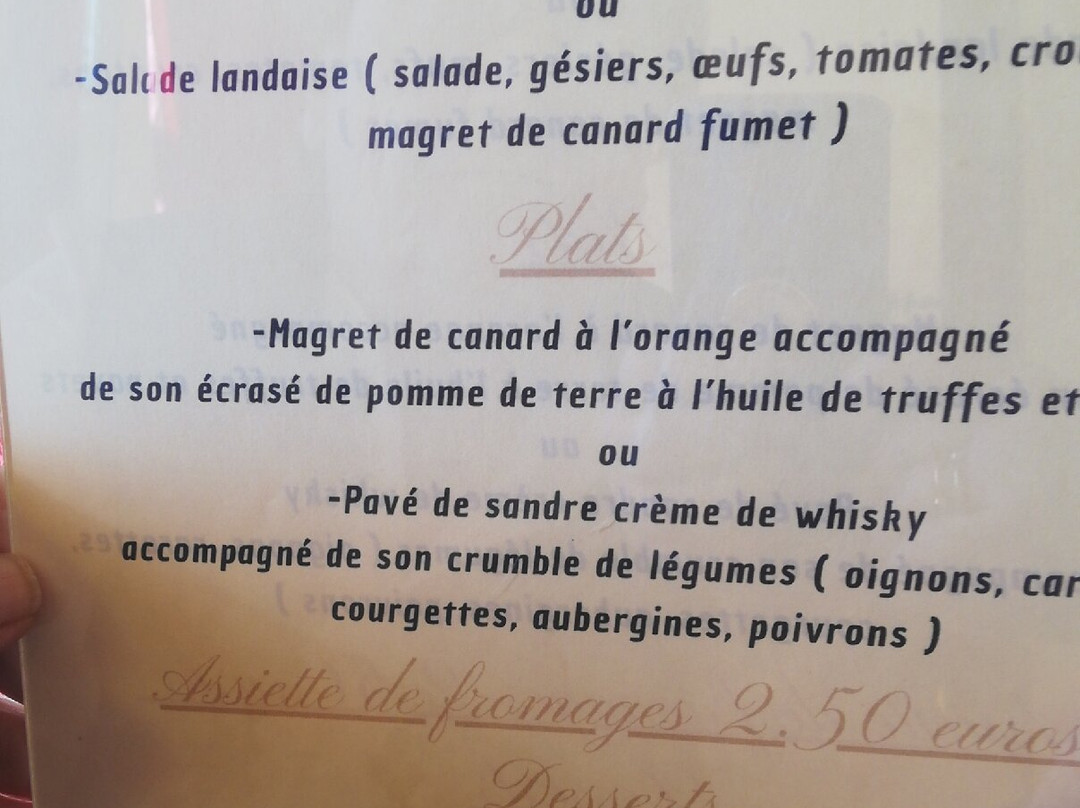 ou
-Salade landaise ( salade, gésiers, œufs, tomates, cro
magret de canard fumet )
Plats
-Magret de canard à l'orange accompagné
de son écrasé de pomme de terre à l'huile de truffes et
ou
-Pavé de sandre crème de whisky
accompagné de son crumble de légumes ( oignons, car
courgettes, aubergines, poivrons )
Assiette de fromages 2.50 euros
Desserts